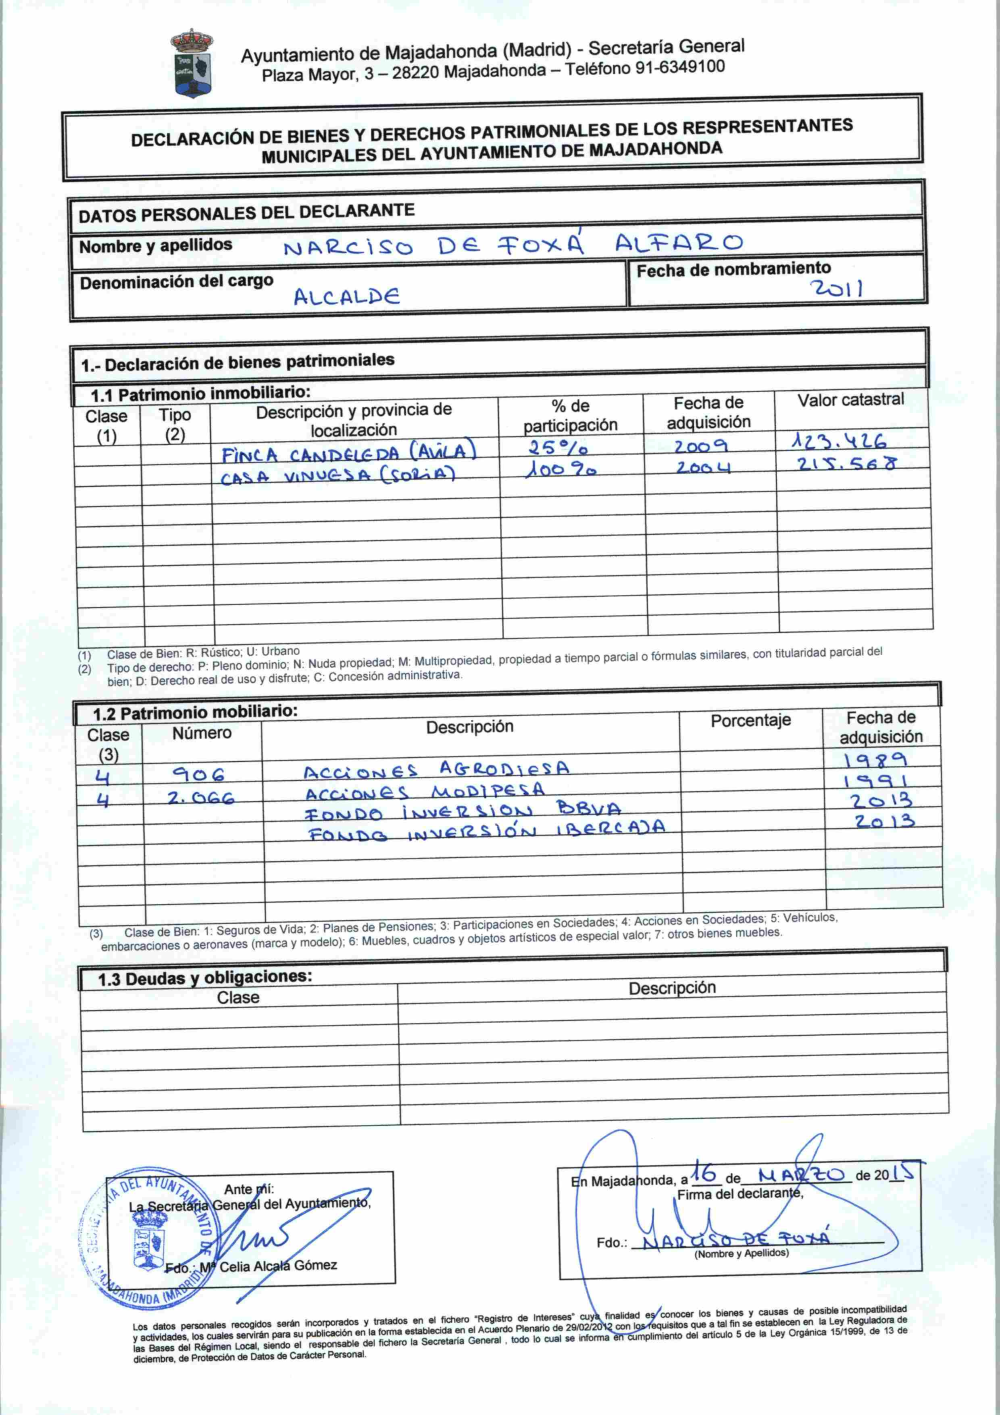 Ayuntamiento de Majadahonda (Madrid) - Secretaría General
Plaza Mayor, 3 – 28220 Majadahonda – Teléfono 91-6349100
DECLARACIÓN DE BIENES Y DERECHOS PATRIMONIALES DE LOS RESPRESENTANTES
MUNICIPALES DEL AYUNTAMIENTO DE MAJADAHONDA
DATOS PERSONALES DEL DECLARANTE
Nombre y apellidos NARCISO DE FOXÁ ALFARO
Denominación del cargo ALCALDE
Fecha de nombramiento 2011
1.- Declaración de bienes patrimoniales
1.1 Patrimonio inmobiliario:
Clase (1) Tipo (2) Descripción y provincia de localización % de participación Fecha de adquisición Valor catastral
FINCA CANDELEDA (AVILA) 25% 2009 123.426
CASA VINUESA (SORIA) 100% 2004 215.568
(1) Clase de Bien: R: Rústico; U: Urbano
(2) Tipo de derecho: P: Pleno dominio; N: Nuda propiedad; M: Multipropiedad, propiedad a tiempo parcial o fórmulas similares, con titularidad parcial del
bien; D: Derecho real de uso y disfrute; C: Concesión administrativa.
1.2 Patrimonio mobiliario:
Clase (3) Número Descripción Porcentaje Fecha de adquisición
4 906 ACCIONES AGRODIESA 1989
4 2.066 ACCIONES MODIPESA 1991
FONDO INVERSION BBVA 2013
FONDO INVERSIÓN IBERCAJA 2013
(3) Clase de Bien: 1: Seguros de Vida; 2: Planes de Pensiones; 3: Participaciones en Sociedades; 4: Acciones en Sociedades; 5: Vehículos,
embarcaciones o aeronaves (marca y modelo); 6: Muebles, cuadros y objetos artísticos de especial valor; 7: otros bienes muebles.
1.3 Deudas y obligaciones:
Clase Descripción
SECRETARIA DEL AYUNTAMIENTO DE MAJADAHONDA (MADRID)
Ante mí:
La Secretaria General del Ayuntamiento,
Fdo.: Mª Celia Alcalá Gómez
En Majadahonda, a 16 de MARZO de 2015
Firma del declarante,
Fdo.: NARCISO DE FOXÁ
(Nombre y Apellidos)
Los datos personales recogidos serán incorporados y tratados en el fichero "Registro de Intereses" cuya finalidad es conocer los bienes y causas de posible incompatibilidad
y actividades, los cuales servirán para su publicación en la forma establecida en el Acuerdo Plenario de 29/02/2012 con los requisitos que a tal fin se establecen en la Ley Reguladora de
las Bases del Régimen Local, siendo el responsable del fichero la Secretaría General , todo lo cual se informa en cumplimiento del artículo 5 de la Ley Orgánica 15/1999, de 13 de
diciembre, de Protección de Datos de Carácter Personal.